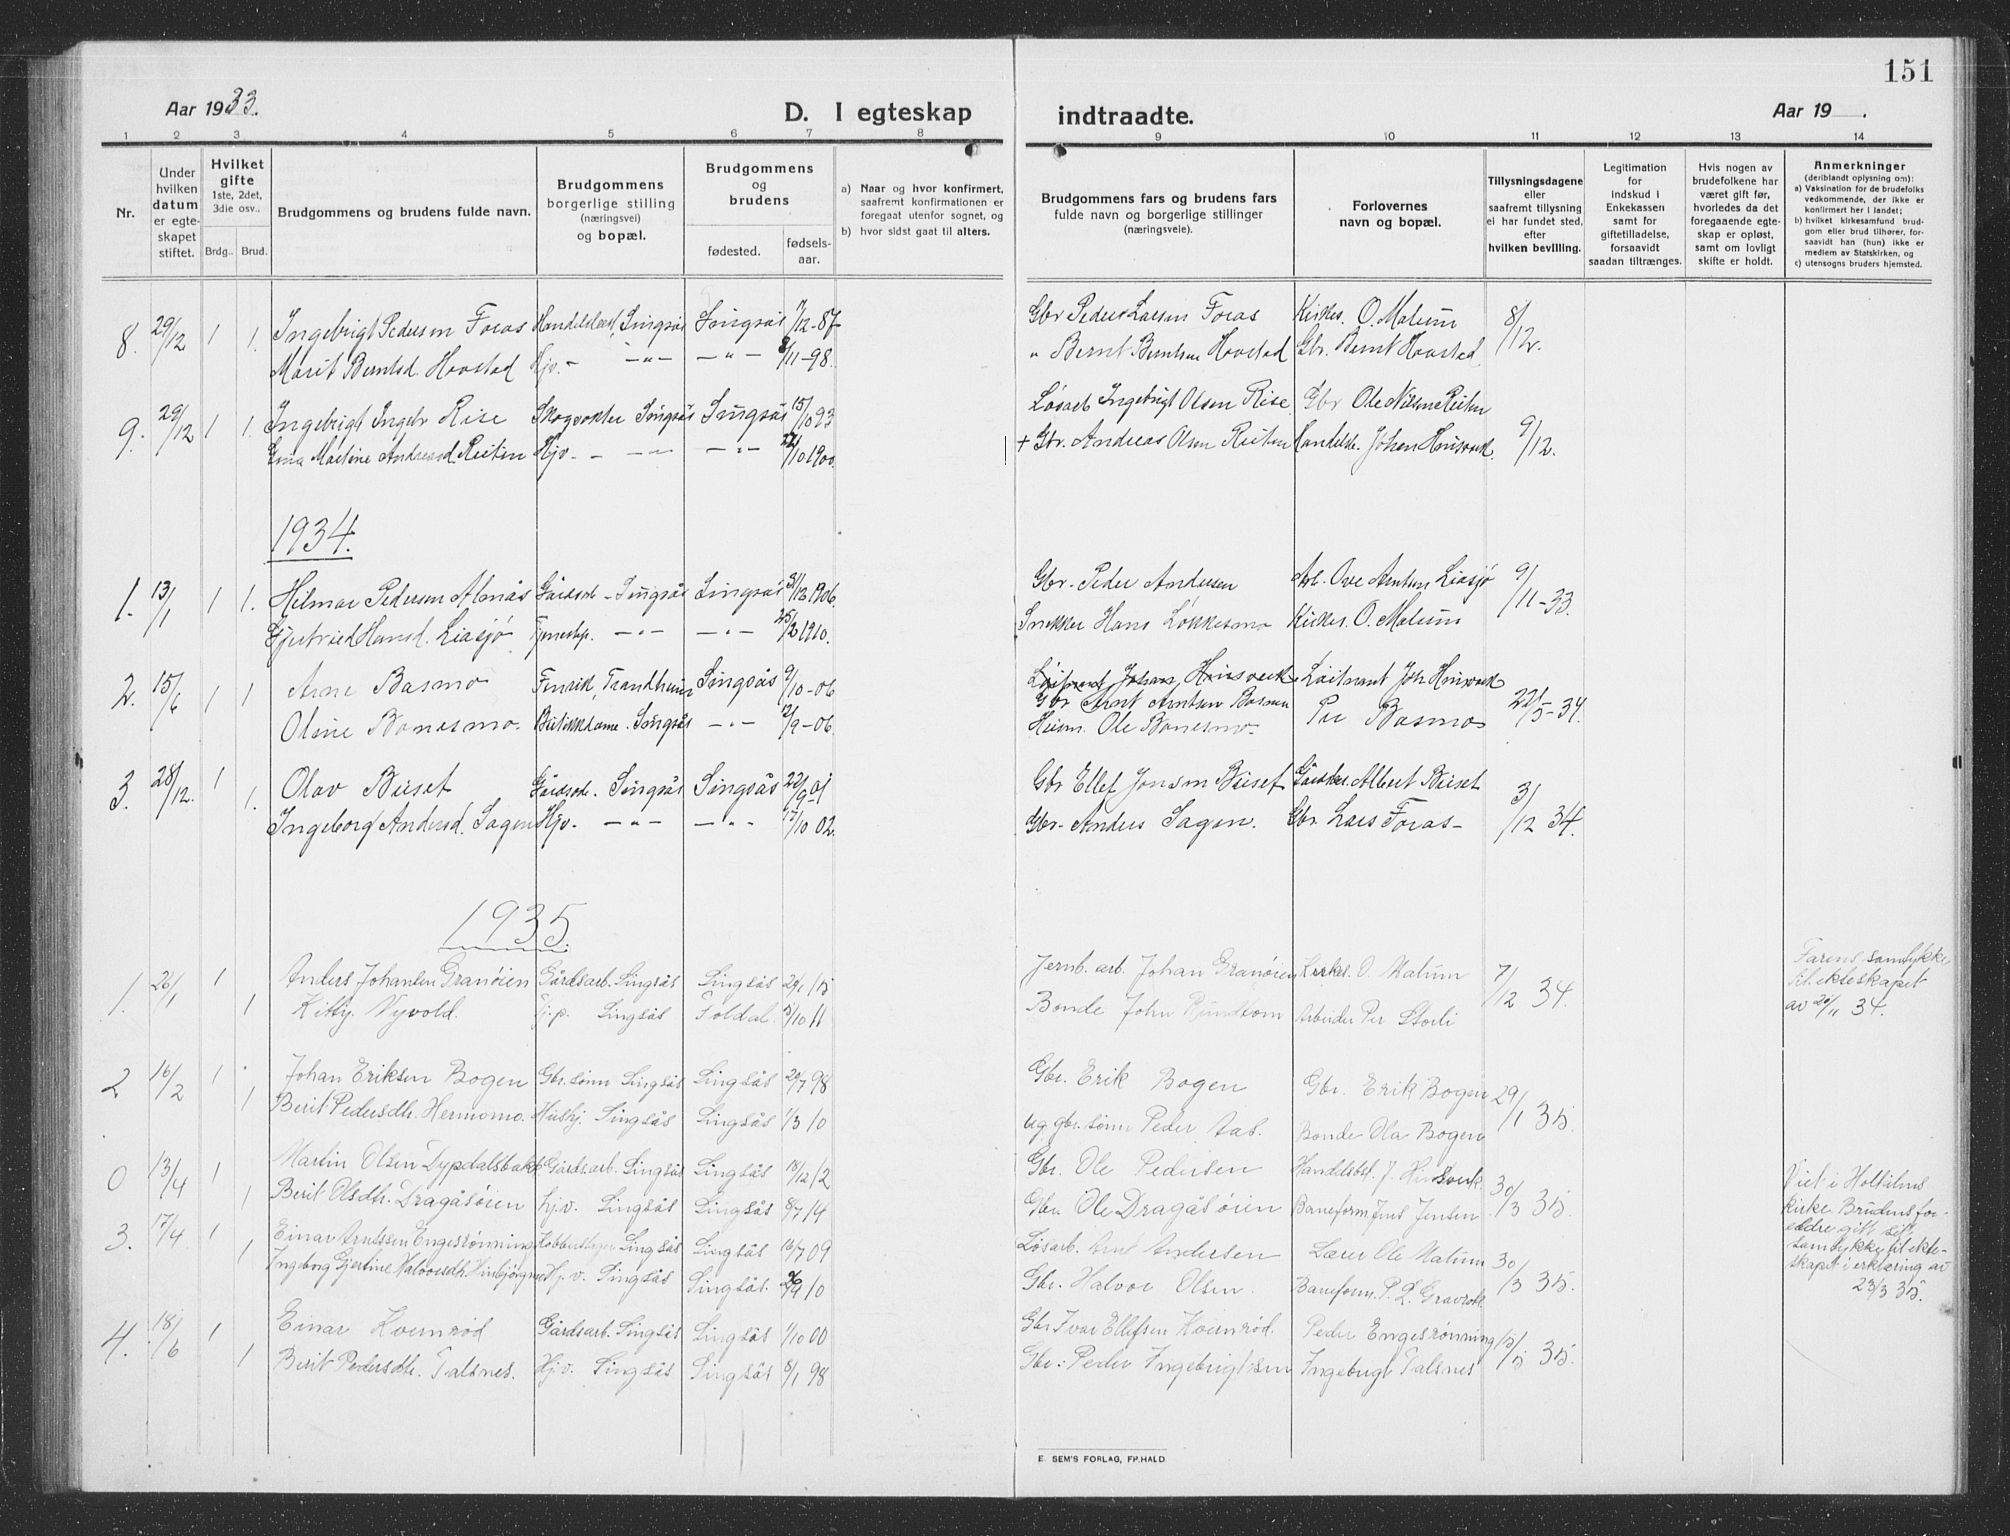 151
Aar 1933.
D. I egteskap
indtraadte.
Aar 19 .
1 2 3 4 5 6 7 8 9 10 11 12 13 14
Nr.
Under hvilken datum er egteskapet stiftet.
Hvilket gifte
1ste, 2det, 3die osv..
Brdg.. Brud.
Brudgommens og brudens fulde navn.
Brudgommens borgerlige stilling (næringsvei) og bopæl.
Brudgommens og brudens
fødested.
fødselsaar.
a) Naar og hvor konfirmert, saafremt konfirmationen er foregaat utenfor sognet, og
b) hvor sidst gaat til alters.
Brudgommens fars og brudens fars
fulde navn og borgerlige stillinger
(næringsveie).
Forlovernes navn og bopæl.
Tillysningsdagene eller saafremt tillysning ei har fundet sted, efter hvilken bevilling.
Legitimation for indskud i Enkekassen samt for giftetilladelse, forsaavidt saadan tiltrænges.
Hvis nogen av brudefolkene har været gift før, hvorledes da det foregaaende egteskap er opløst, samt om lovligt skifte er holdt.
Anmerkninger
(deriblandt oplysning om):
a) Vaksination for de brudefolks vedkommende, der ikke er konfirmert her i landet;
b) hvilket kirkesamfund brudgom eller brud tilhører, forsaavidt han (hun) ikke er medlem av Statskirken, og
c) utensogns bruders hjemsted.
8. 29/12 1 1. Ingebrigt Pedersen Foras Singsås Singsås 7/12-87 Gbr Peder Larsen Foras Kirkes. O. Matum 8/12.
Marit Berntsd. Hovstad Hjv. - - " - - " - 8/11-98. " Bernt Berntsen Hovstad Gbr. Bernt Hovstad
9. 29/12 1 1. Ingebrigt Ingebr Rise Skogvokter Singsås Singsås 15/10 93 Løsarb Ingebrigt Olsen Rise Gbr Ole Nilsen Reiten 9/12.
Martine Andreasd. Reiten Hjv. - - " - - " - 22/10 1900. + Gbr. Andreas Olsen Reiten Handelsb. Johan Hinsverk.
1934.
1. 13/1 1 1. Hilmar Pedersen Almås Gårdsarb - Singsås Singsås 31/12 1906. Gbr. Peder Andersen Arb. Ove Arntsen Liasjø 9/11-33.
Gjertrud Hansd. Liasjø - " - - " - 25/2 1910. Snekker Hans Løkkesmo Kirkes. O. Matum
2. 15/6 1 1 Arne Basmo Fenrik, Trondheim Singsås 9/10-06 Løitnant Johan Hinsverk Løitnant Joh Hinsverk 22/5-34.
Gbr Arnt Arntsen Basmo
Oline Bonesmo. Butikkdame. Singsås - " - 12/9-06. Ole Bonesmo. Per Basmo
3. 28/12. 1 1. Olav Buset Gårdsarb. Singsås Singsås 22/9 01 Gbr Ellef Jonsen Buset Albert Buset 3/12 34.
Ingeborg Andersd. Sagen Hjv. - " - - " - 17/10 02. Gbr. Anders Sagen. Gbr. Lars Foras -
1935.
1. 26/1 1 Anders Johansen Granøien Gårdsarb. Singsås Singsås 29/1 15 Jernb. arb. Johan Granøien Kirkes. O. Matum 7/12 34.
1 Kitty Nyvold. Singsås Foldal. 3/10 11 Bonde John Arbeider Per Storli
Farens samtykke
til ekteskapet
av 20/11 34.
2 16/2 1 Johan Eriksen Bogen Gbr.sønn Singsås Singsås 29/7 98 Gbr. Erik Bogen Gbr. Erik Bogen 29/1 35.
1 Berit Pedersdtr. Hermomo. Hushj. Singsås Singsås 1/3 10 ug gbr. sønn Peder Aas. Bonde Ola Bogen
0 13/4 1 Martin Olsen Dypdalsbakk Gårdsarb. Singsås Singsås 18/12 12 Gbr. Ole Pedersen Handelsbst. J. Hinsverk. 30/3 35.
1 Berit Olsdtr. Dragåsøien hj.v. Singsås Singsås 8/7 14 Gbr. Ole Dragåsøien Baneform. Jens Jensen
Viet i Holtålens
kirke Brudens for-
eldre gitt sit
samtykke til ekte-
skapet i erklæring av
23/3 35.
3. 17/4 1 Einar Arntssen Engesrønning Singsås Singsås 16/7 09 Løsarb. Arnt Andersen Lærer Ole Matum 30/3 35.
1 Ingeborg Gjertine Halvorsdtr. Hinbjørgmo Hj.v. Singsås Singsås. 26/9 10 Gbr. Halvor Olsen. Baneform. P. L. Gravrok
4. 18/6 1 Einar Kvernrød Gårdsarb. Singsås Singsås 1/10 00 Gbr Ivar Ellefsen Kvernrød. Peder Engesrønning 13/5 35.
1 Berit Pedersdtr. Talsnes. Hj.v. Singsås Singsås 8/1 98 Gbr: Peder Ingebrigtsen Ingebrigt Talsnes
E. SEM'S FORLAG, FR.HALD